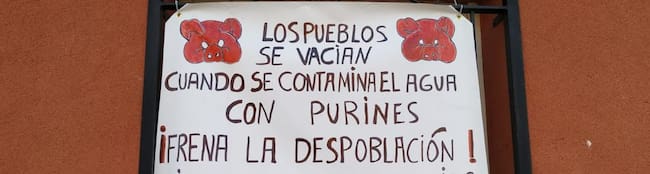 LOS PUEBLOS
SE VACIAN
CUANDO SE CONTAMINA EL AGUA
CON PURINES
¡FRENA LA DESPOBLACIÓN!